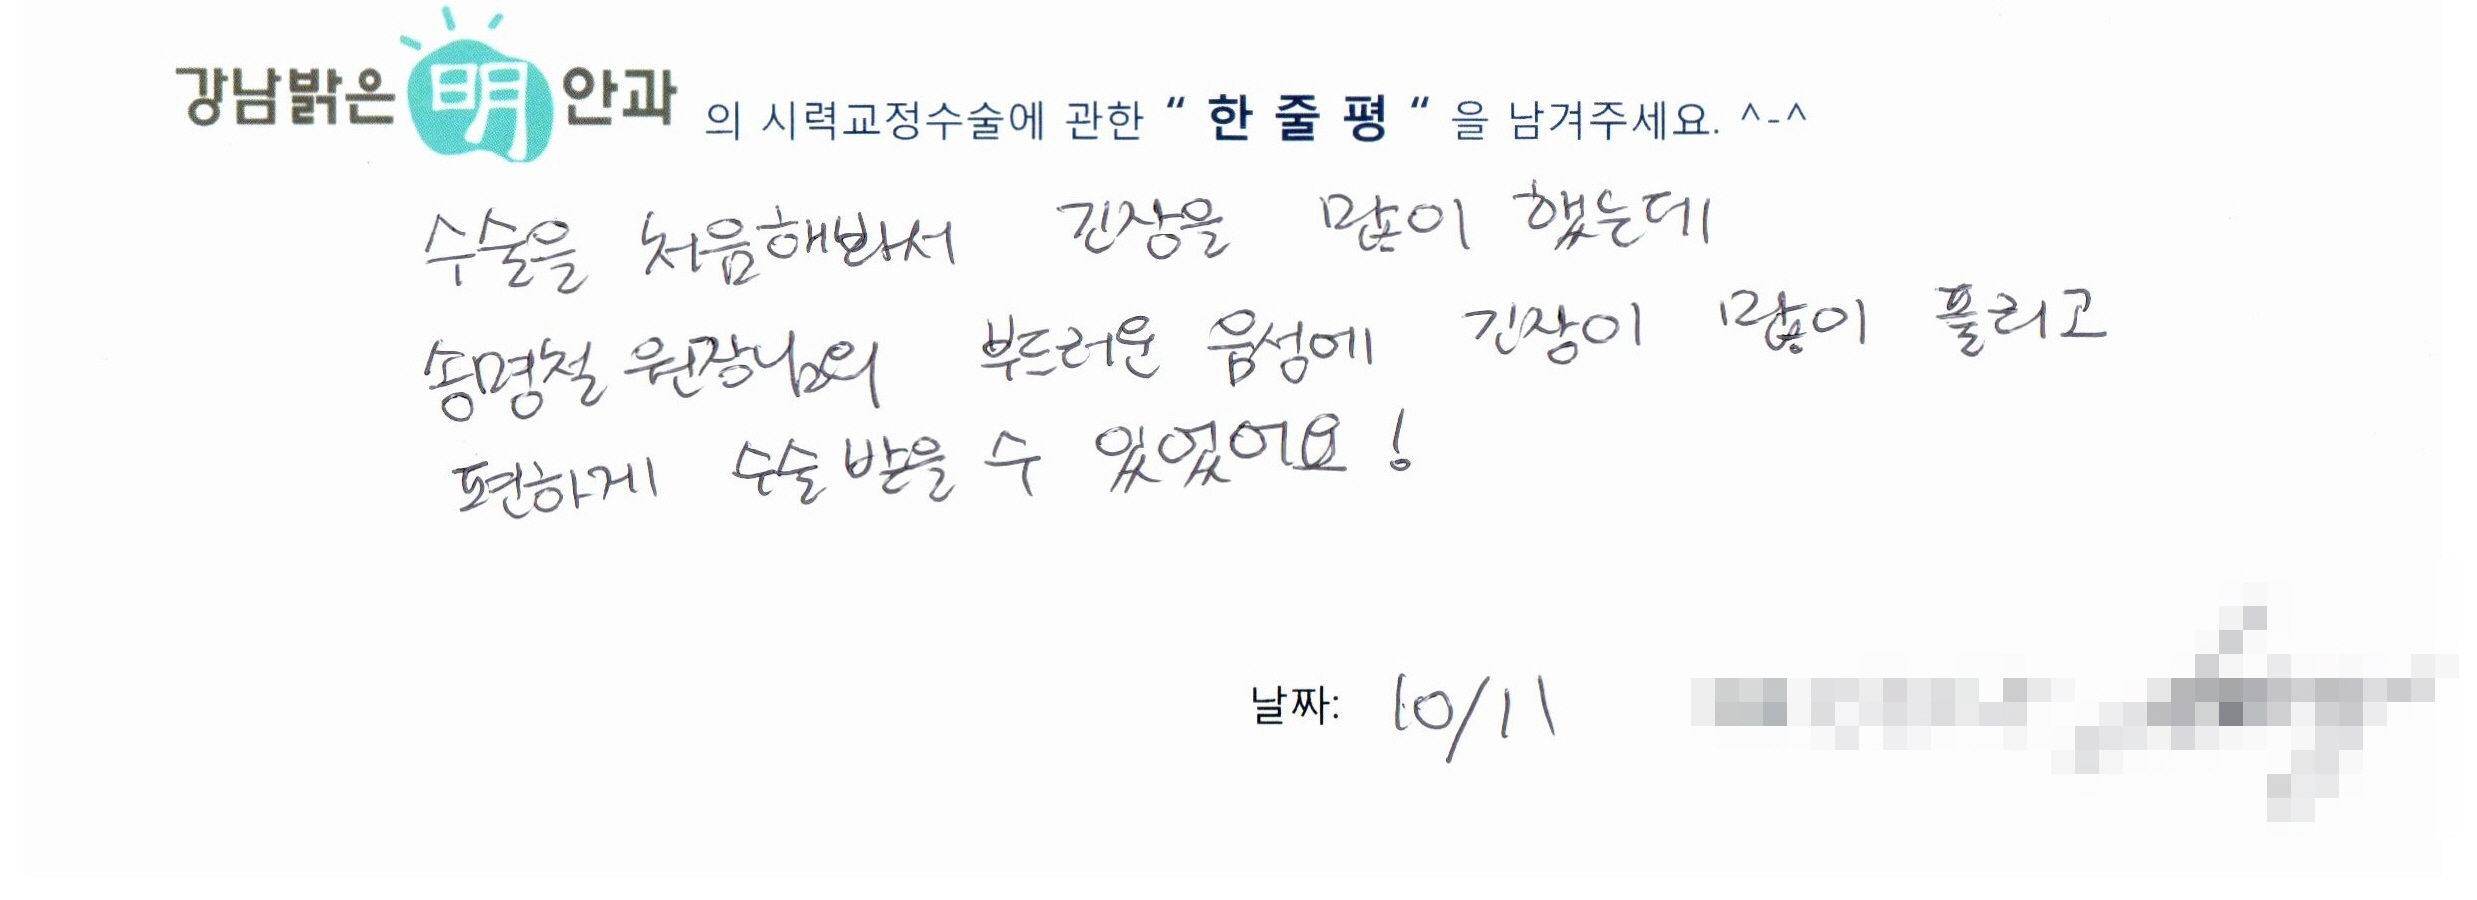 강남밝은 明 안과 의 시력교정수술에 관한 “ 한 줄 평 “ 을 남겨주세요. ^-^
수술을 처음해봐서 긴장을 많이 했는데
송명철 원장님의 부드러운 음성에 긴장이 많이 풀리고
편하게 수술 받을 수 있었어요!
날짜: 10/11